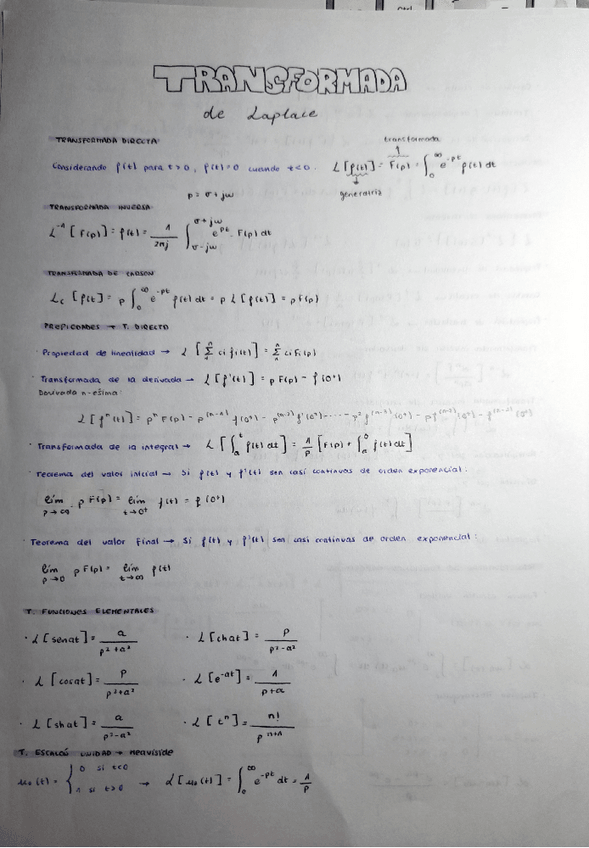 TRANSFORMADA
de Laplace
TRANSFORMADA DIRECTA
transformada
Considerando f(t) para t>0, f(t)=0 cuando t<0. ℒ[f(t)] = F(p) = ∫₀^∞ e^{-pt} f(t) dt
p = σ + jω generatriz
TRANSFORMADA INVERSA
ℒ⁻¹[F(p)] = f(t) = 1/(2πj) ∫_{σ-jω}^{σ+jω} e^{pt} · F(p) dt
TRANSFORMADA DE CARSON
ℒc [f(t)] = p ∫₀^∞ e^{-pt} f(t) dt = p ℒ[f(t)] = p F(p)
PROPIEDADES → T. DIRECTO
· Propiedad de linealidad → ℒ[Σ ci fi(t)] = Σ ci Fi(p)
· Transformada de la derivada → ℒ[f'(t)] = p F(p) - f(0⁺)
Derivada n-ésima:
ℒ[fⁿ(t)] = pⁿ F(p) - p^{(n-1)} f(0⁺) - p^{(n-2)} f'(0⁺)
· Transformada de la integral → ℒ[∫ₐᵗ f(t) dt] = 1/p [F(p) + ∫ₐ⁰ f(t) dt]
· Teorema del valor inicial → Si f(t) y f'(t) son casi continuas de orden exponencial:
lim_{p→∞} p F(p) = lim_{t→0⁺} f(t) = f(0⁺)
· Teorema del valor Final → Si f(t) y f'(t) son casi continuas de orden exponencial:
lim_{p→0} p F(p) = lim_{t→∞} f(t)
T. FUNCIONES ELEMENTALES
· ℒ[senat] = a/(p²+a²) · ℒ[chat] = p/(p²-a²)
· ℒ[cosat] = p/(p²+a²) · ℒ[e^{-at}] = 1/(p+a)
· ℒ[shat] = a/(p²-a²) · ℒ[tⁿ] = n!/p^{n+1}
T. ESCALÓN UNIDAD → Heaviside
μ₀(t) = { 0 si t<0 1 si t>0 → ℒ[μ₀(t)] = ∫₀^∞ e^{-pt} dt = 1/p